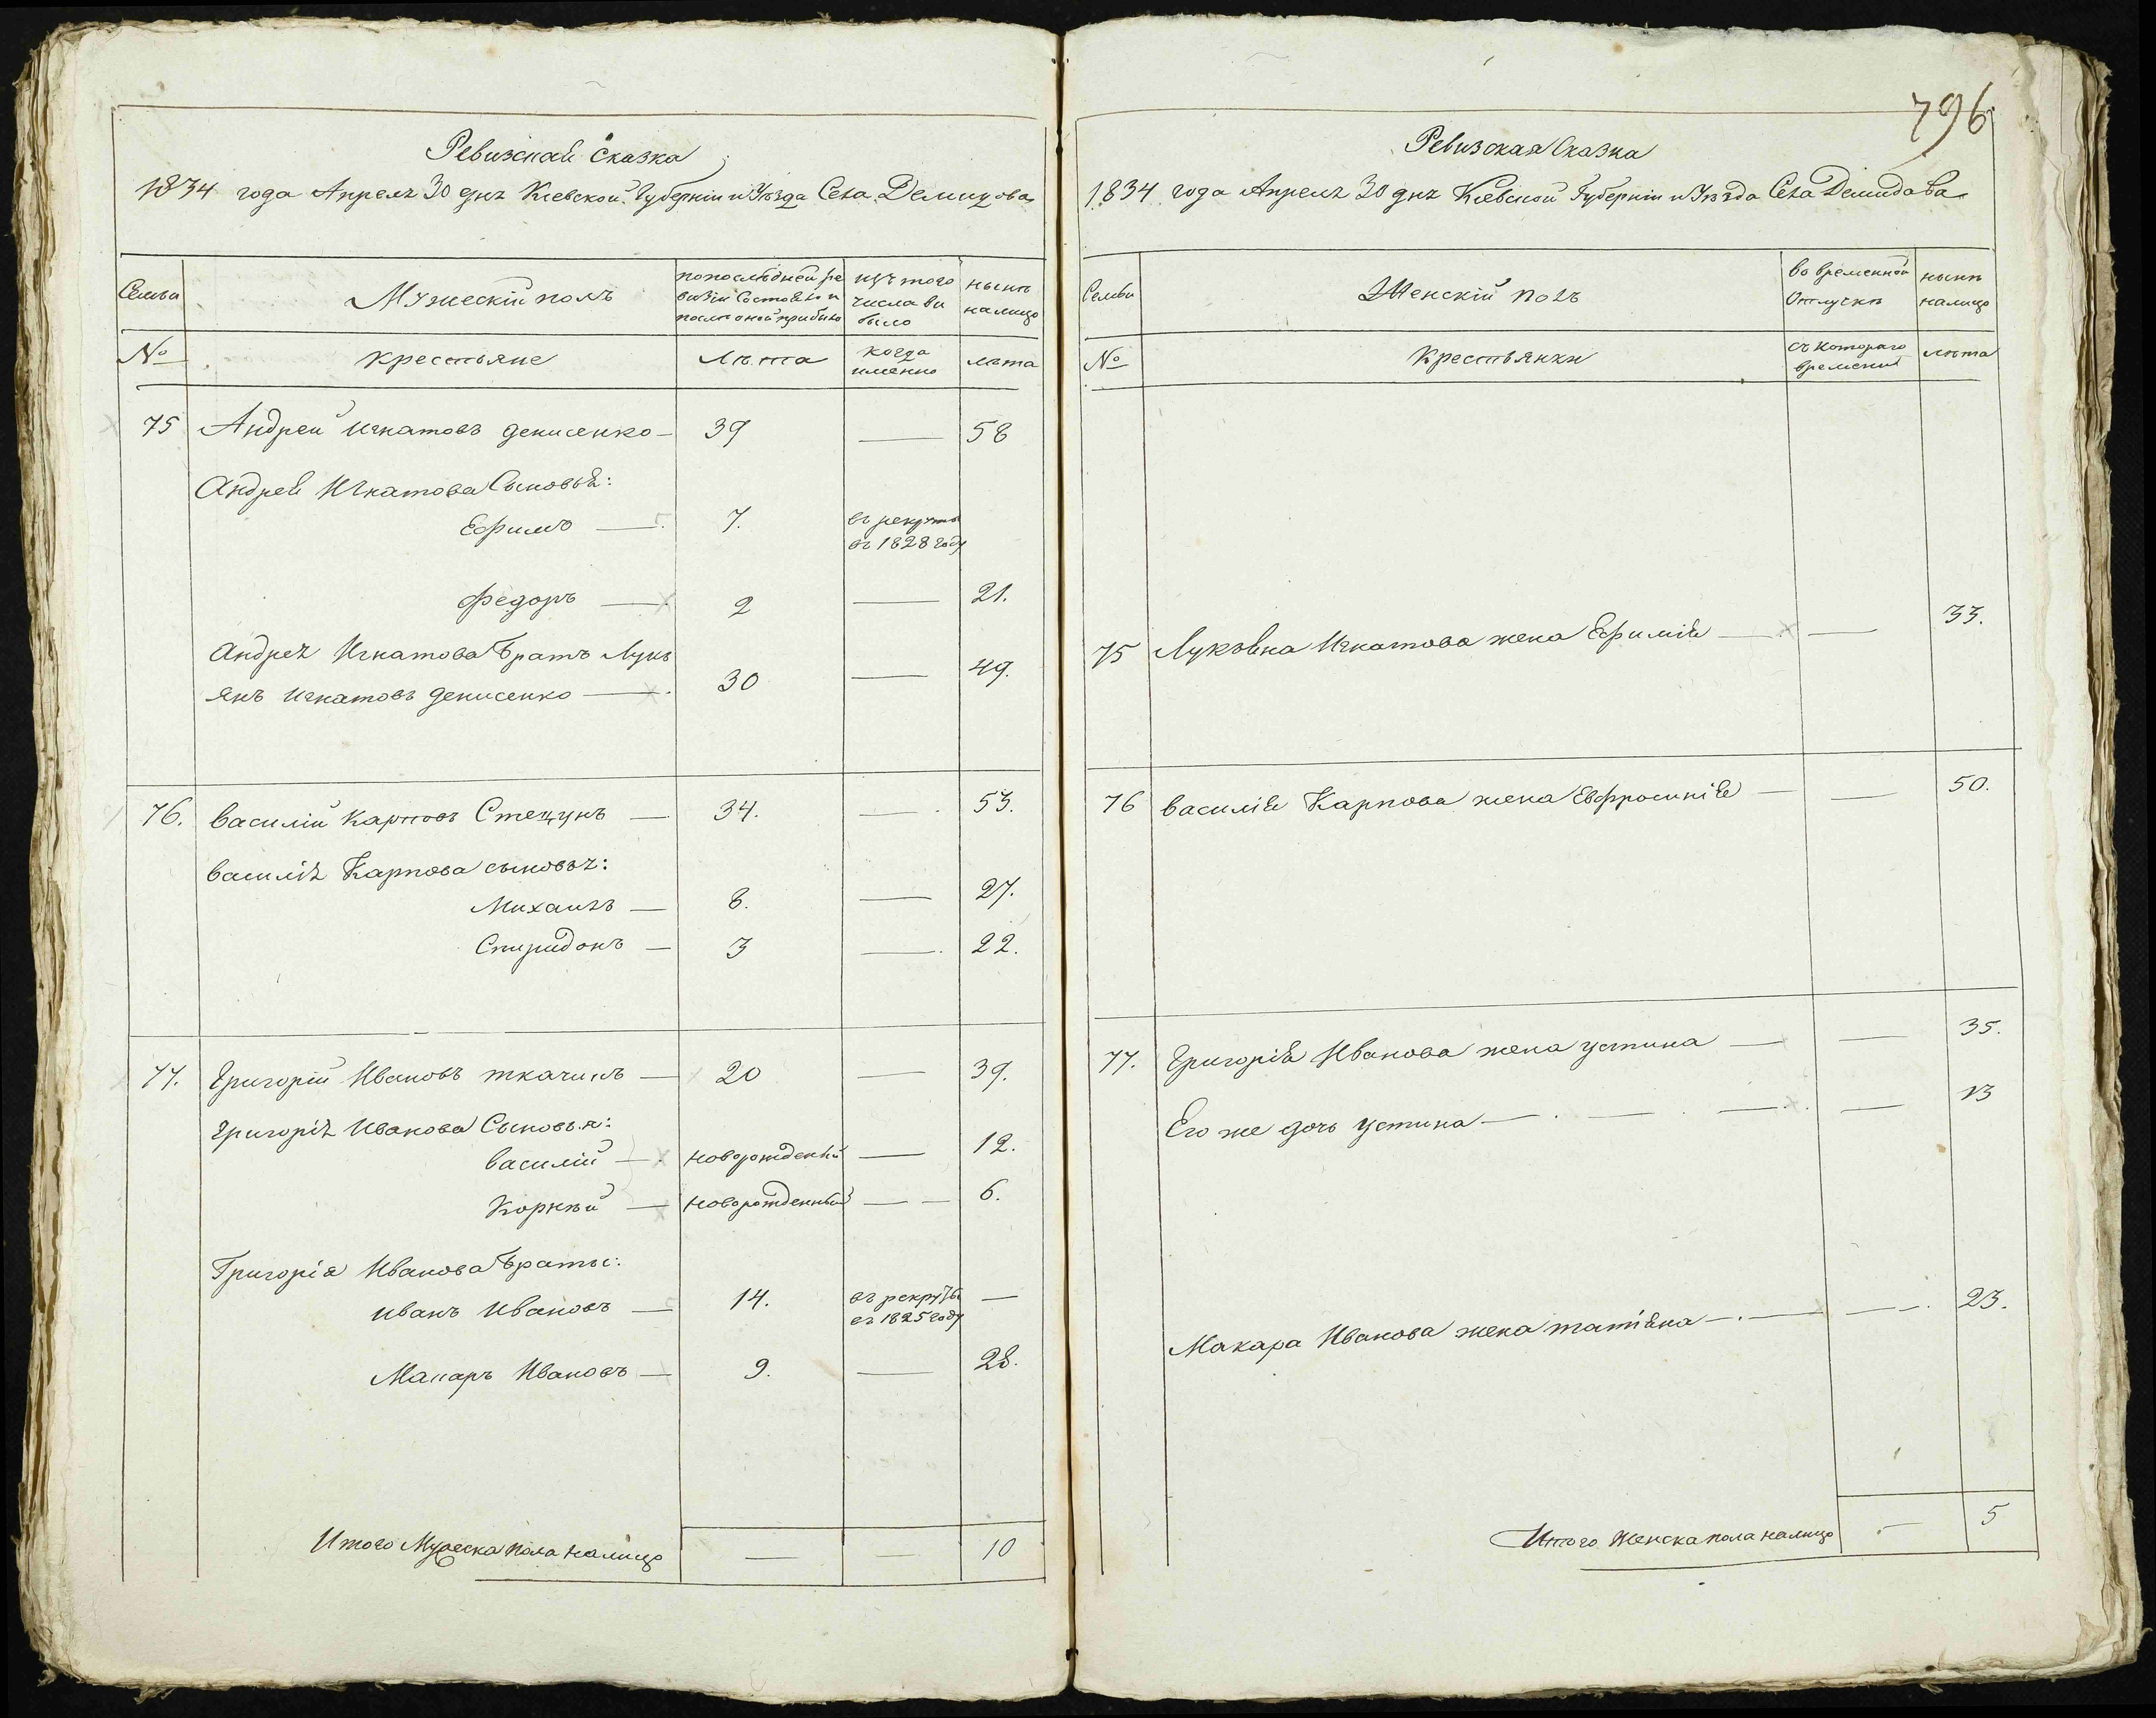 Ревизская Сказка
1834 года Апреля 30 дня Киевской Губернии и Уѣзда Села Демидова
Семьи
Мужескій полъ
по послѣдней ре
визіи состояло и
послѣ оной прибыло
изъ того
числа вы
было
нынѣ
налицо
№
крестьяне
Лѣта
когда
именно
лѣта
75 Андрей Игнатовъ денисенко 39 — 58
Андрея Игнатова Сыновья:
Ефимъ — 7. въ рекруты
въ 1828 году
Федоръ — 2 — 21.
Андрея Игнатова Братъ Лукь
янъ Игнатовъ денисенко — 30 — 49.
76. Василій Карповъ Стецунъ — 34. — 53.
Василія Карпова сыновья:
Михаилъ — 8. — 27.
Спиридонъ — 3 — 22.
77. Григорій Ивановъ ткачикъ — 20 — 39.
Григорія Иванова Сыновья:
Василій — новорожденный — 12.
Корнѣй — новорожденный — 6.
Григорія Иванова Браты:
Иванъ Ивановъ — 14. въ рекруты —
въ 1825 году
Макаръ Ивановъ — 9. — 28.
Итого Мужеска пола налицо — — 10
796
Ревизская Сказка
1834 года Апреля 30 дня Киевской Губерніи и Уѣзда Села Демидова
Семьи
Женскій полъ
во временной
Отлучкѣ
нынѣ
налицо
№
Крестьянки
съ котораго
времени
лѣта
75 Лукьяна Игнатова жена Ефимія — — 33.
76 Василія Карпова жена Евфросинія — — 50.
77. Григорія Иванова жена устина — — 35.
Его же дочь Устина — — 13
Макара Иванова жена татіяна — — 23.
Итого Женска пола налицо — 5